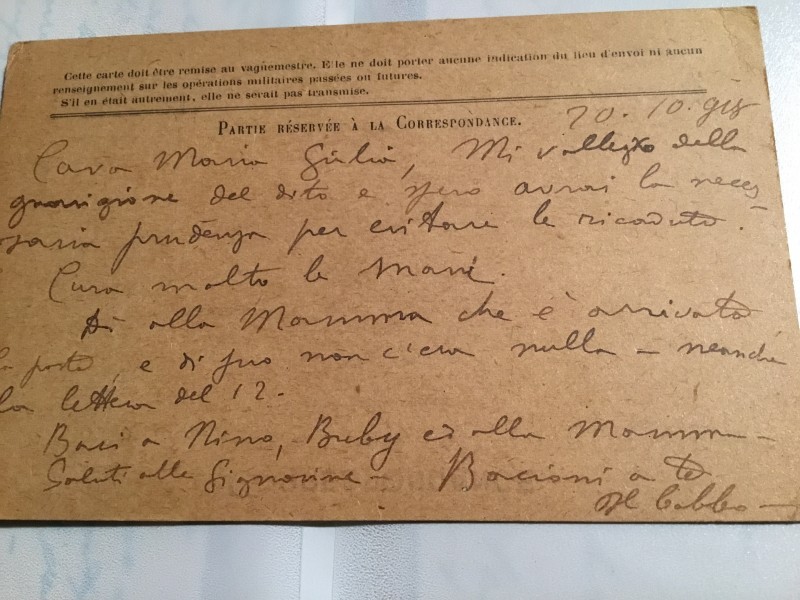 Cette carte doit être remise au vaguemestre. Elle ne doit porter aucune indication du lieu d'envoi ni aucun
renseignement sur les opérations militaires passées ou futures.
S'il en était autrement, elle ne serait pas transmise.
PARTIE RÉSERVÉE À LA CORRESPONDANCE.
20.10.918
Cara Maria Giulia, Mi rallegro della
guarigione del dito e spero avrai la neces-
saria prudenza per evitare le ricadute.
Cura molto le mani.
Di alla Mamma che è arrivata
la posta, e di suo non c'era nulla - neanche
la lettera del 12.
Baci a Nino, Buby ed alla Mamma -
Saluti alle Signorine - Bacioni a te
Il babbo -